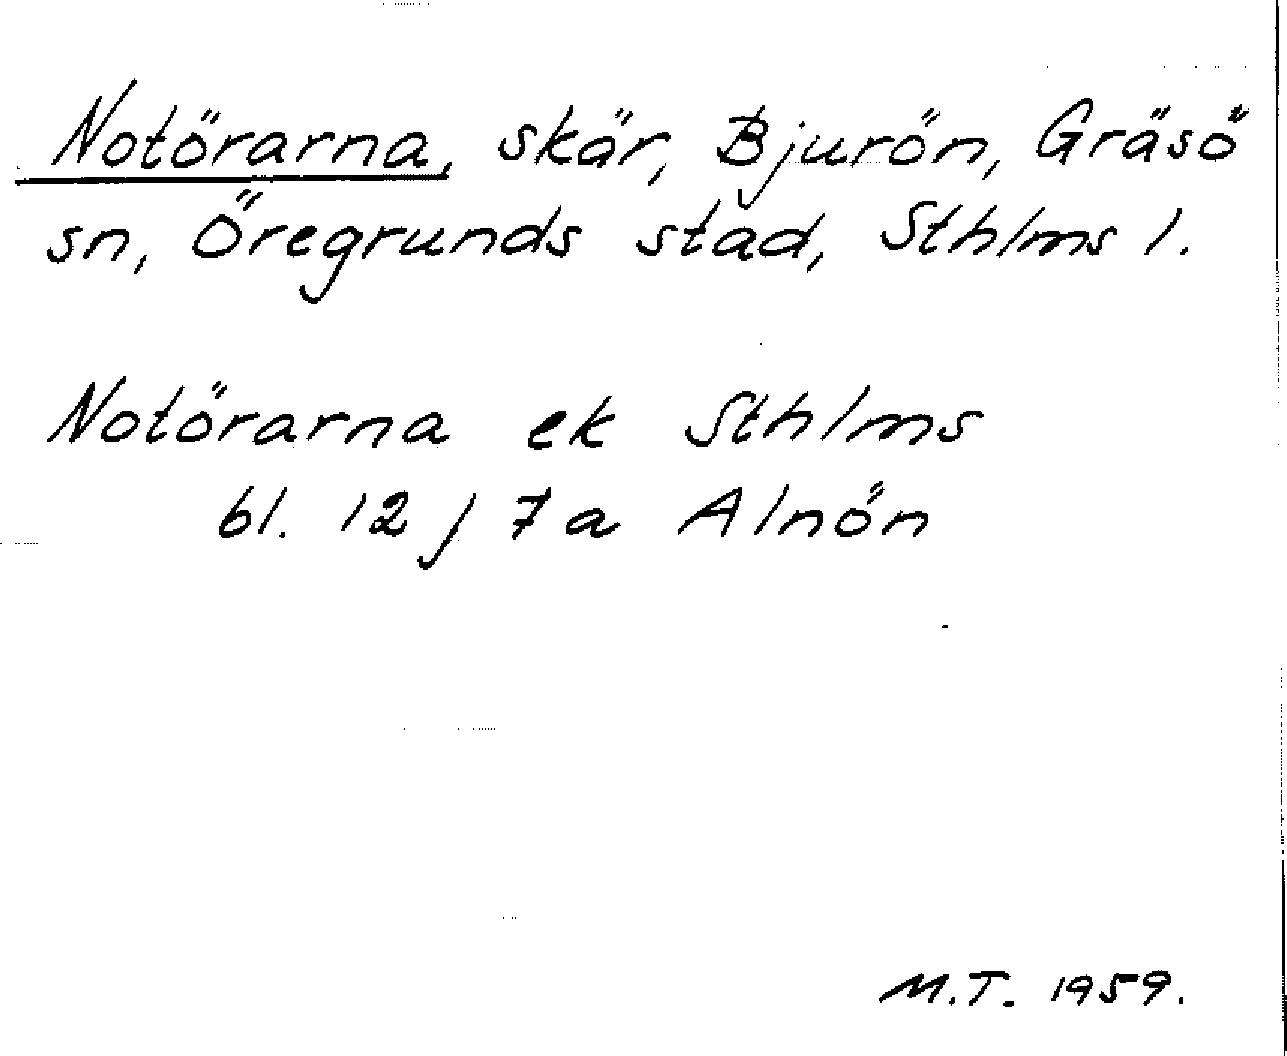 Notörarna, skär, Bjurön, Gräsö
sn, Öregrunds stad, Sthlms l.
Notörarna ek Sthlms
bl. 12 j 7a Alnön
M.T. 1959.